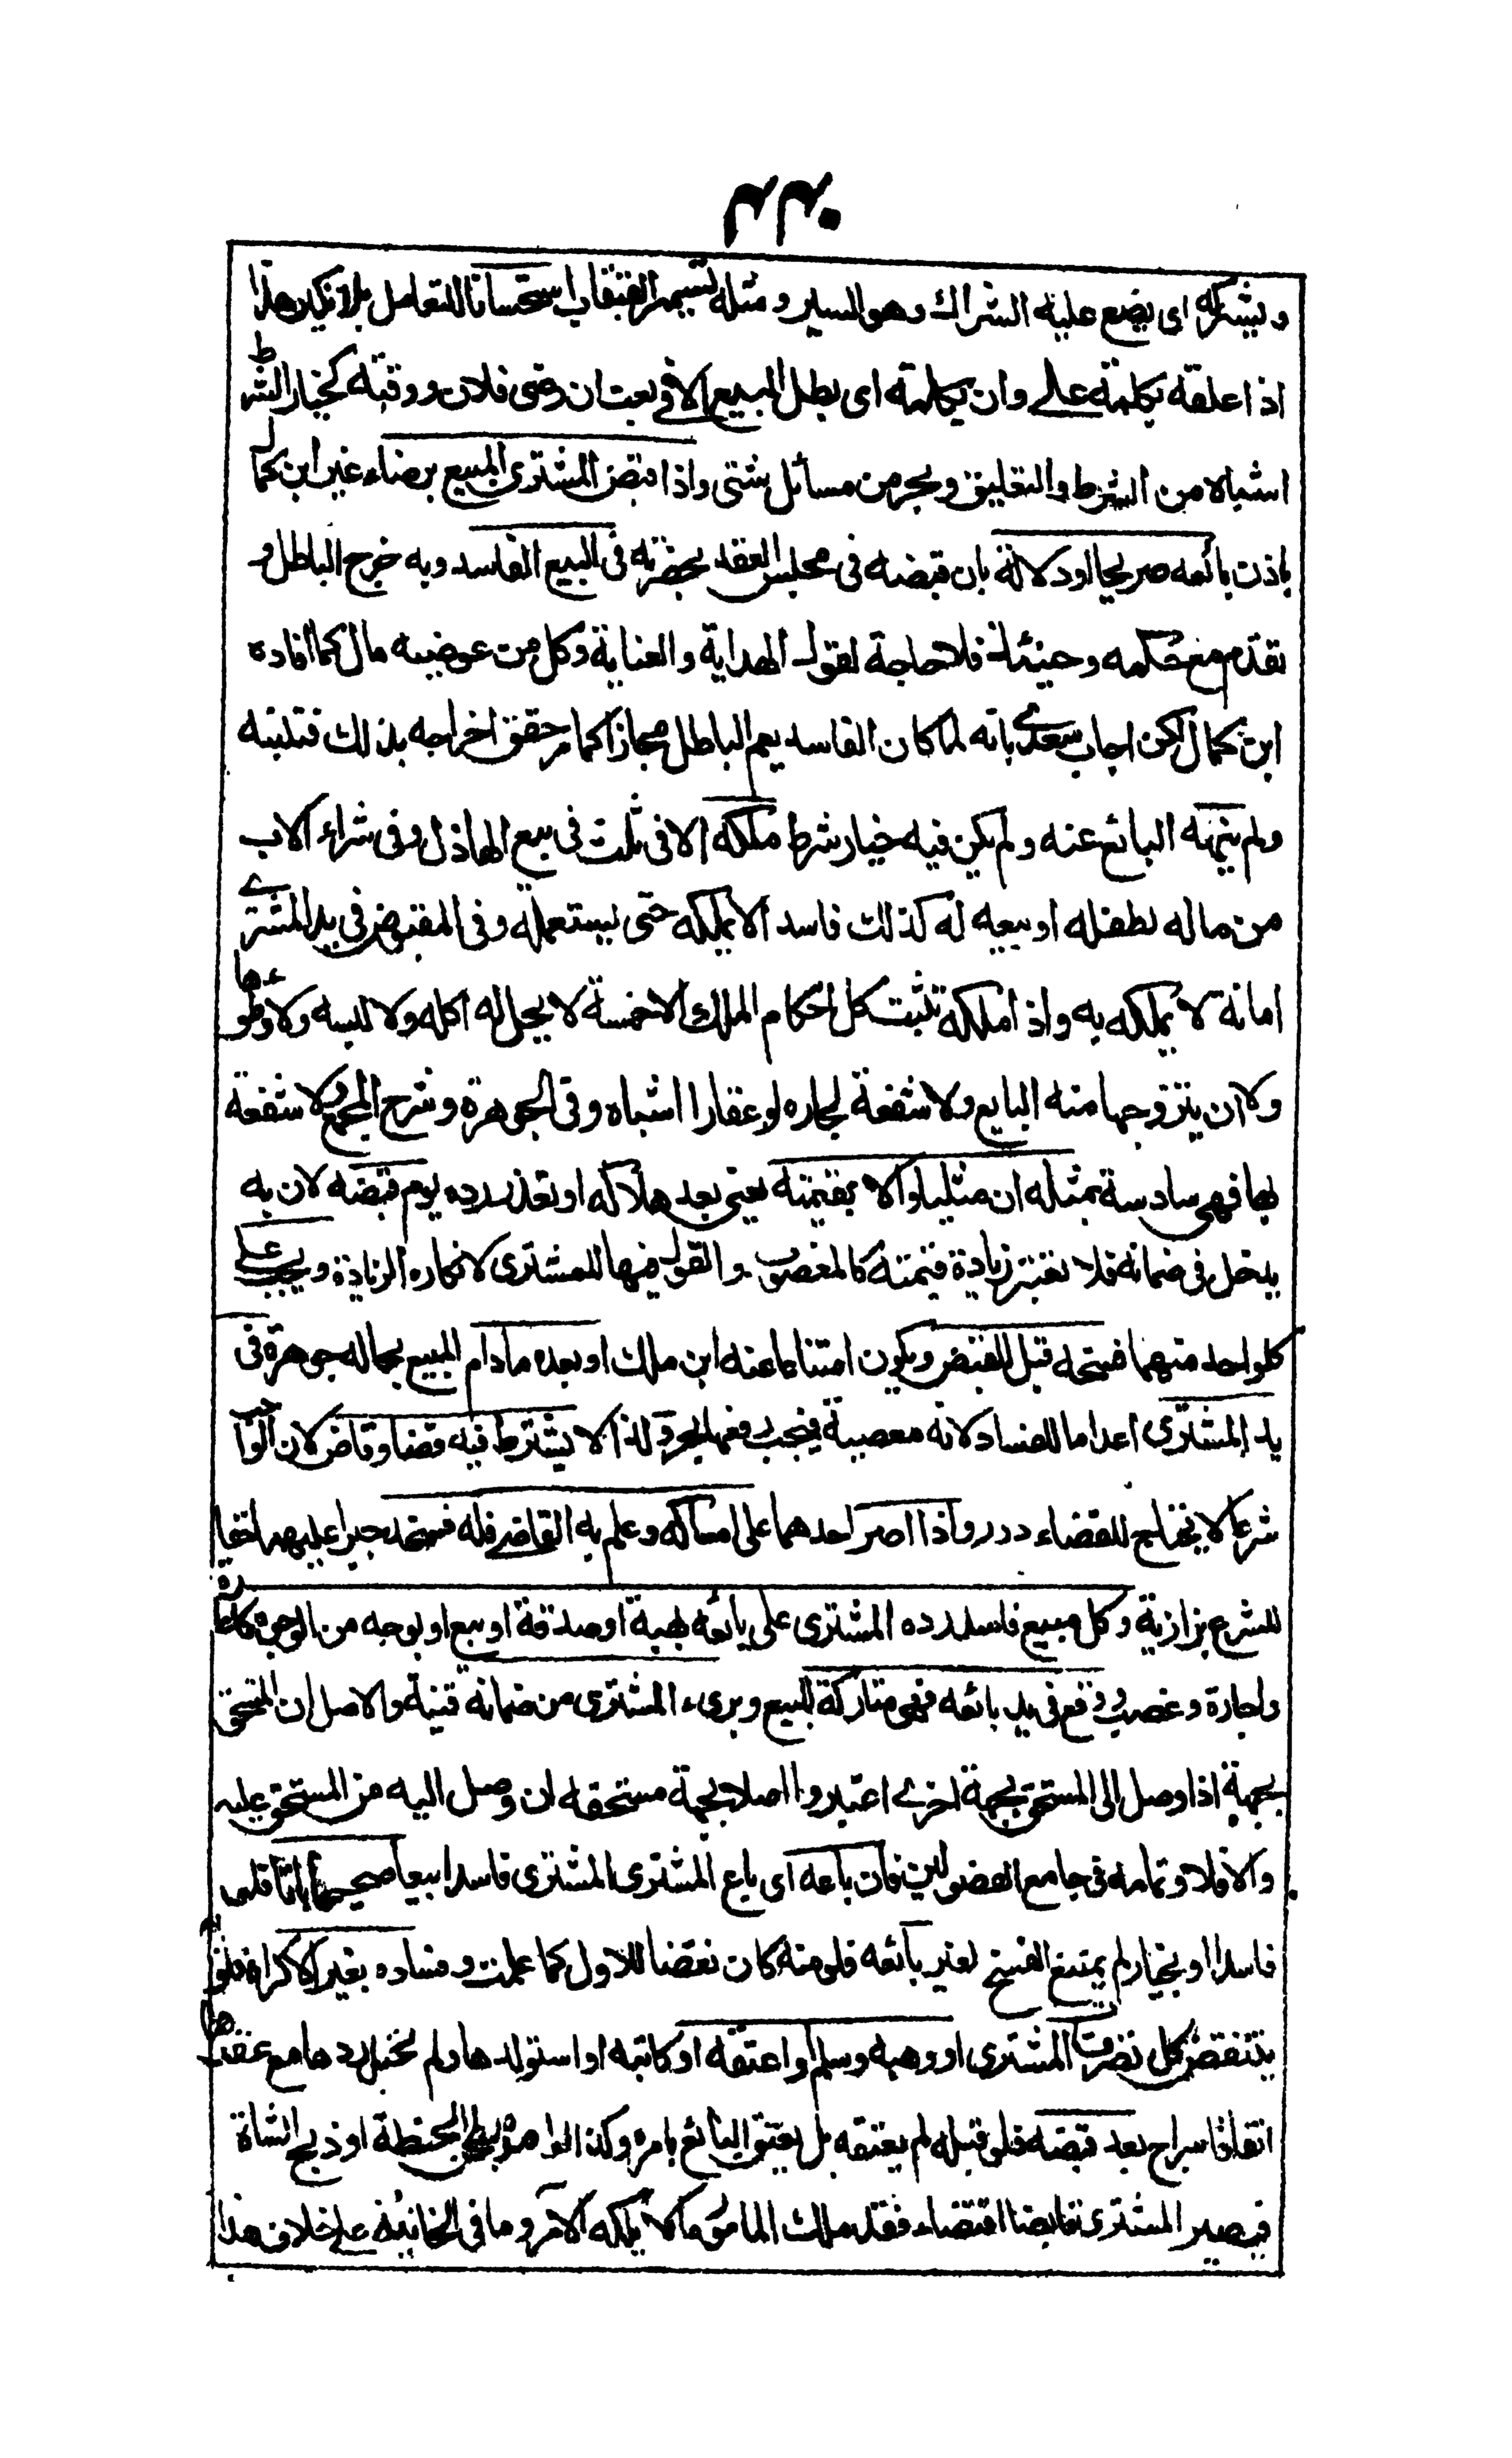 ٢٢٠
ويشركه اى يضع عليه الشراك وهو السير ومثله تسمير القبقاب استحسانا للتعامل بلا نكير هذا
اذا علقه بكلمة على وان بكلمة اى بطل البيع الا فى بعت ان رضى فلان ووقته كخيار الشرط
اشباه من الشرط والتعليق وبحر من مسائل شتى واذا قبض المشترى المبيع برضاء عبر ابن كمال
باذن بائعه صريحا او دلالة بان قبضه فى مجلس العقد بحضرته فى البيع الفاسد وبه خرج الباطل و
تقدم مع حكمه وحينئذ فلا حاجة لقول الهداية والعناية وكل من عوضيه مال كما افاده
ابن كمال لكن اجاب سعدى بانه لما كان الفاسد يعم الباطل مجازا كما مر حقق اخراجه بذلك فتنبه
ولم ينهه البائع عنه ولم يكن فيه خيار شرط ملكه الا فى ثلث فى بيع الهاذل وفى شراء الاب
من ماله لطفله او بيعه له كذلك فاسد الا يملكه حتى يستعمله وفى المقبوض فى يد المشترے
امانة لا يملكه به واذا ملكه تثبت كل احكام الملك الا خمسة لا يحل له اكله ولا لبسه ولا وطوءها
ولا ان يتزوجها منه البايع ولا شفعة لجاره لو عقارا اشباه وفى الجوهرة وشرح المجمع ولا شفعة
بها فهى سادسة بمثله ان مثليا والا بقيمته يعنى بعد هلاكه او تعذر رده يوم قبضه لان به
يدخل فى ضمانه فلا تعتبر زيادة قيمته كالمغصوب والقول فيها للمشترى لانكاره الزيادة ويجب على
كل واحد منهما فسخه قبل القبض ويكون امتناعا عنه ابن ملك او بعده ما دام المبيع بحاله جوهرة فى
يد المشترى اعداما للفساد لانه معصية فيجب رفعها بحر ولذا لا يشترط فيه قضا وقاض لان الواجب
شرعا لا يحتاج للقضاء درر واذا اصر احدهما على امساكه وعلم به القاضے فله فسخه جبرا عليهما حقا
للشرع بزازية وكل مبيع فاسد رده المشترى على بائعه بهبة او صدقة او بيع او بوجه من الوجوه كاعارة
واجارة وغصب ووقع فى يد بائعه فهو متاركة للبيع وبرىء المشترى من ضمانه قنية والاصل ان المستحق
بجهة اذا وصل الى المستحق بجهة اخرے اعتبر واصلا بجهة مستحقه ان وصل اليه من المستحق عليه
والا فلا وتمامه فى جامع الفضولين فان باعه اى باع المشترى المشترى فاسدا بيعا صحيحا باتا فلو
فاسدا او بخيار لم يمتنع الفسخ لغير بائعه فلو منه كان نقضا للاول كما علمت وفساده بغير الاكراه فلو به
ينتقض كل تصرفات المشترى او وهبه وسلم او اعتقه او كاتبه او استولدها ولم تحبل ردها مع عقرها
اتفاقا سراج بعد قبضه فلو قبله لم يعتقه بل يعتق البائع بامره وكذا لو امره بطحن الحنطة او ذبح الشاة
فيصير المشترى قابضا اقتضاء فقد ملك المامور ما لا يملكه الآمر وما فى الخانية على خلاف هذا